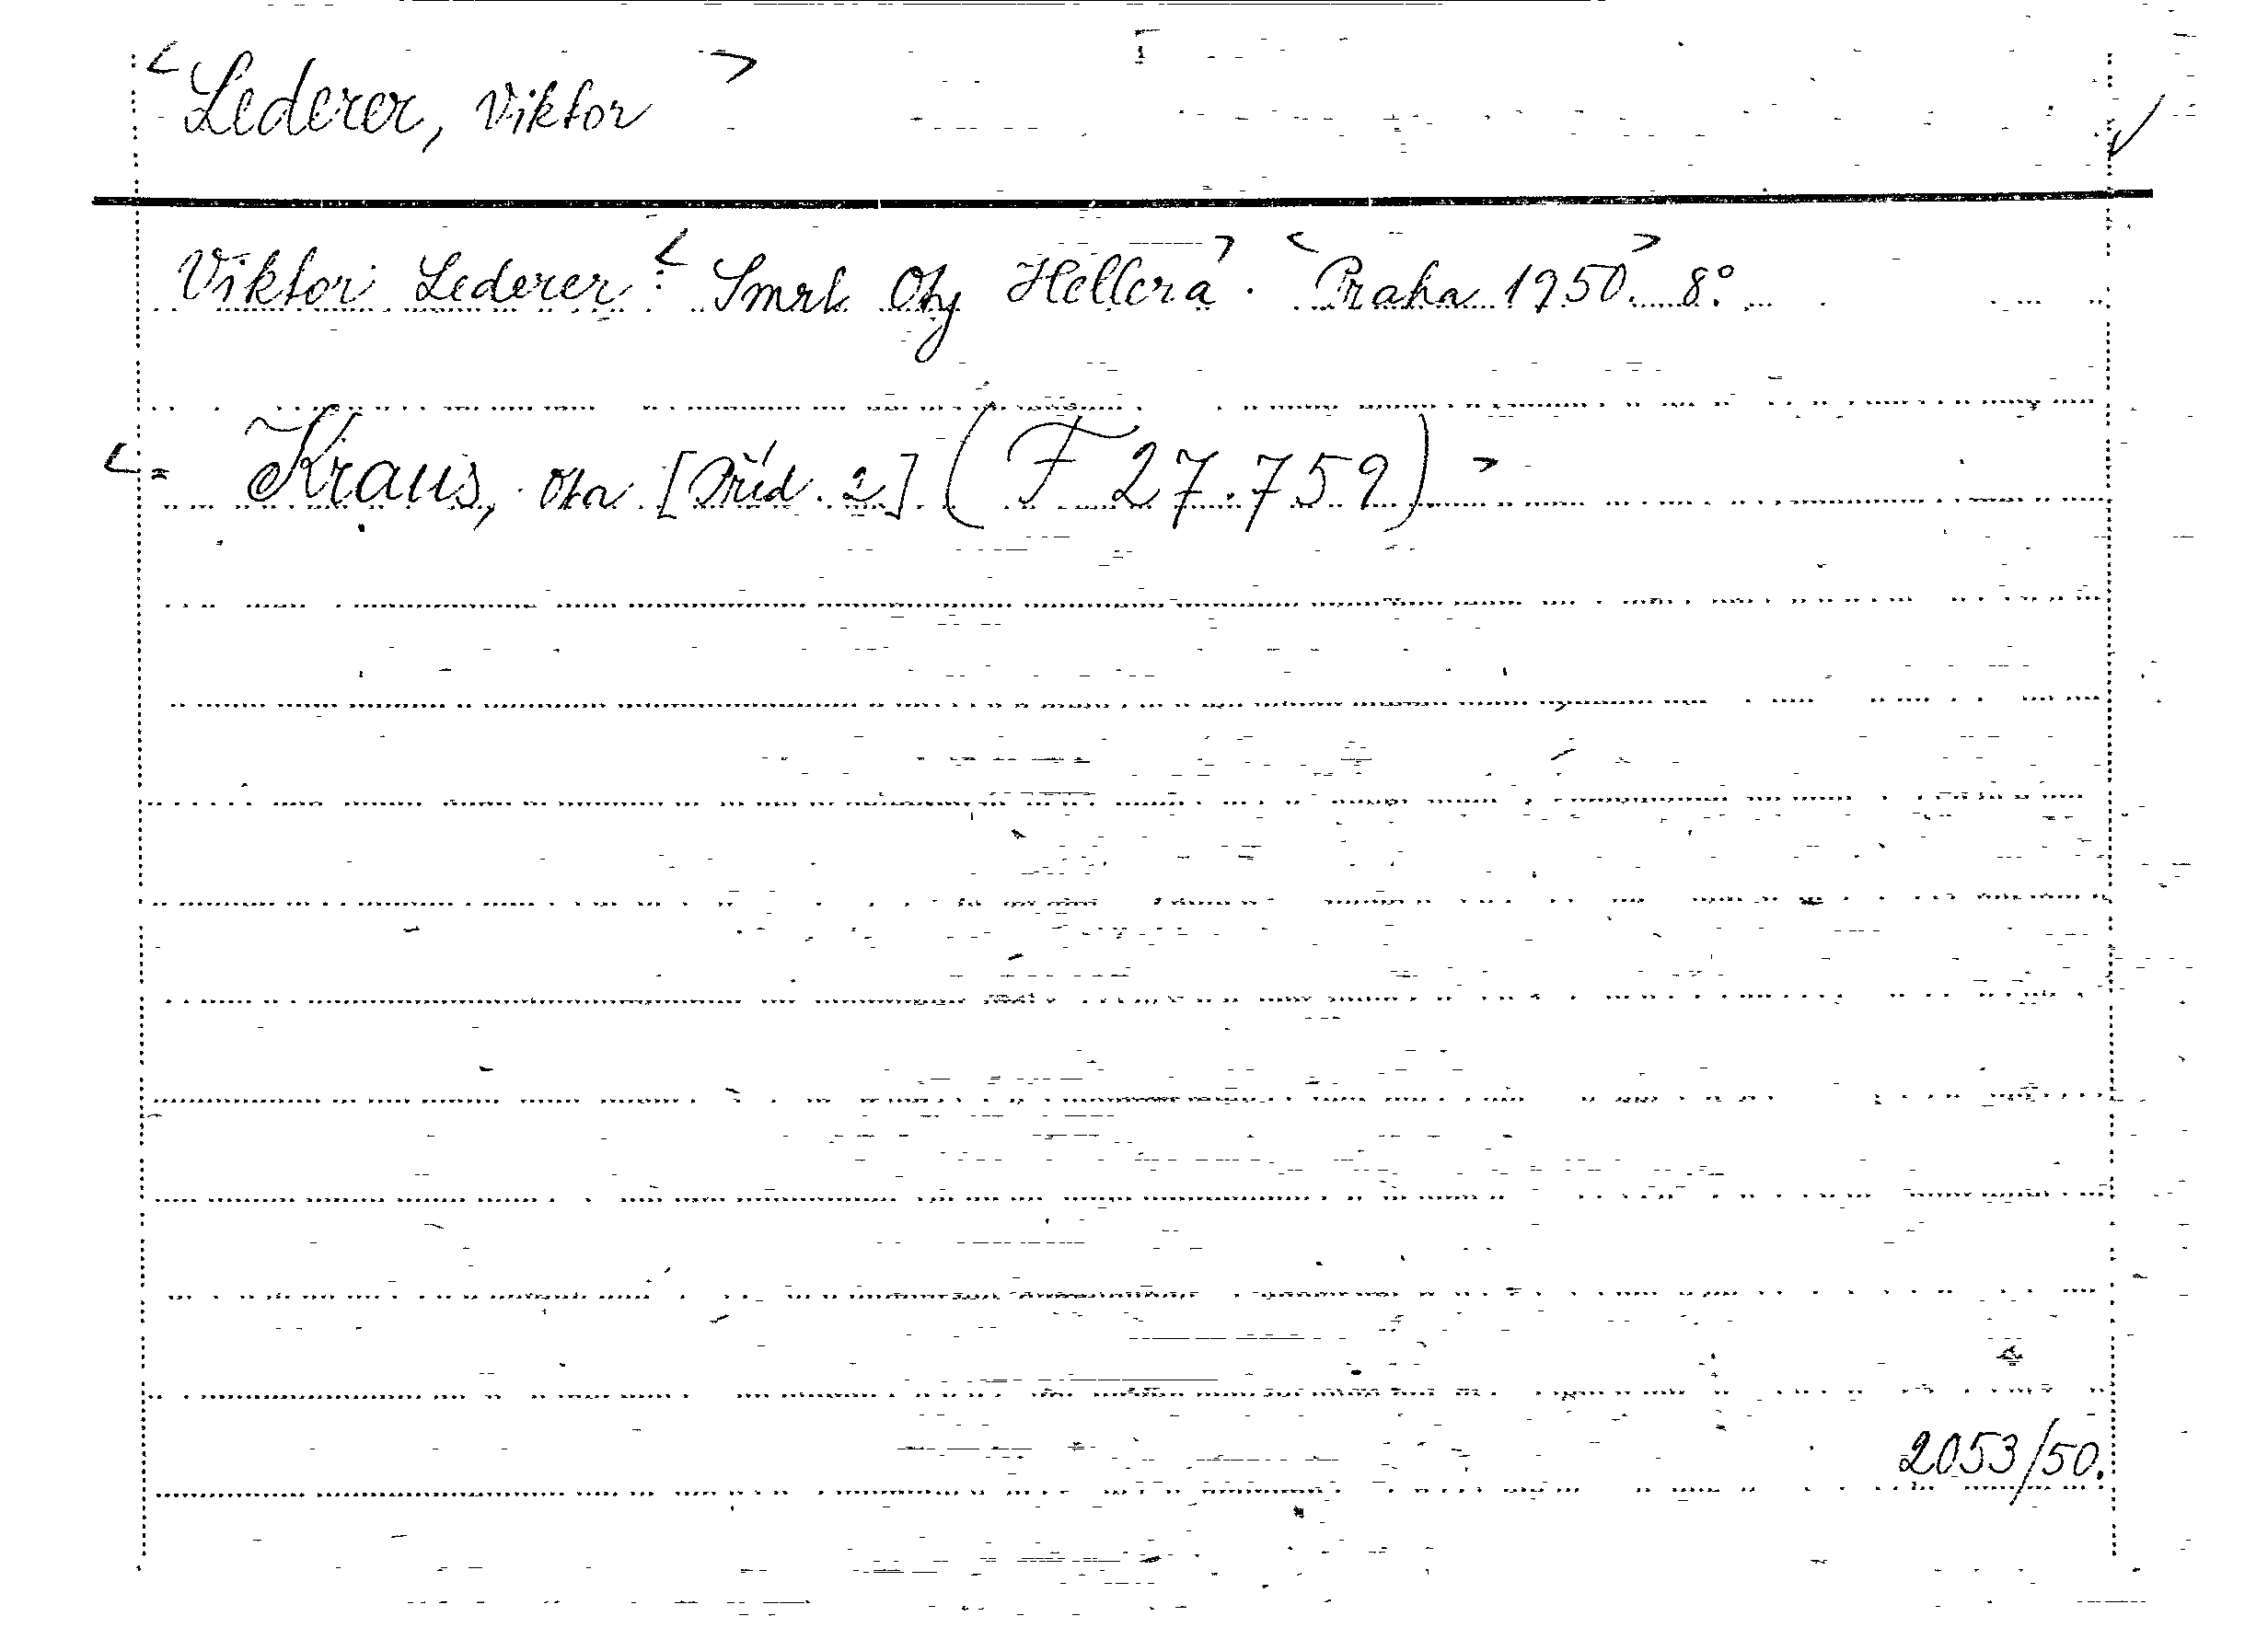 <Lederer, Viktor>
Viktor Lederer: <Smrt Oty Hellera>. <Praha 1950>. 8°.
<= Kraus, Ota [Příd. 2] (F 27.759)>
2053/50.